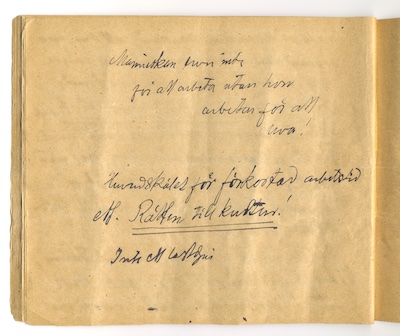 Människan lever inte
för att arbeta utan hon
arbetar för att
leva!
Huvudskälet för förkortad arbetstid
är. Rätten till kultur!
Inte att lastdjur